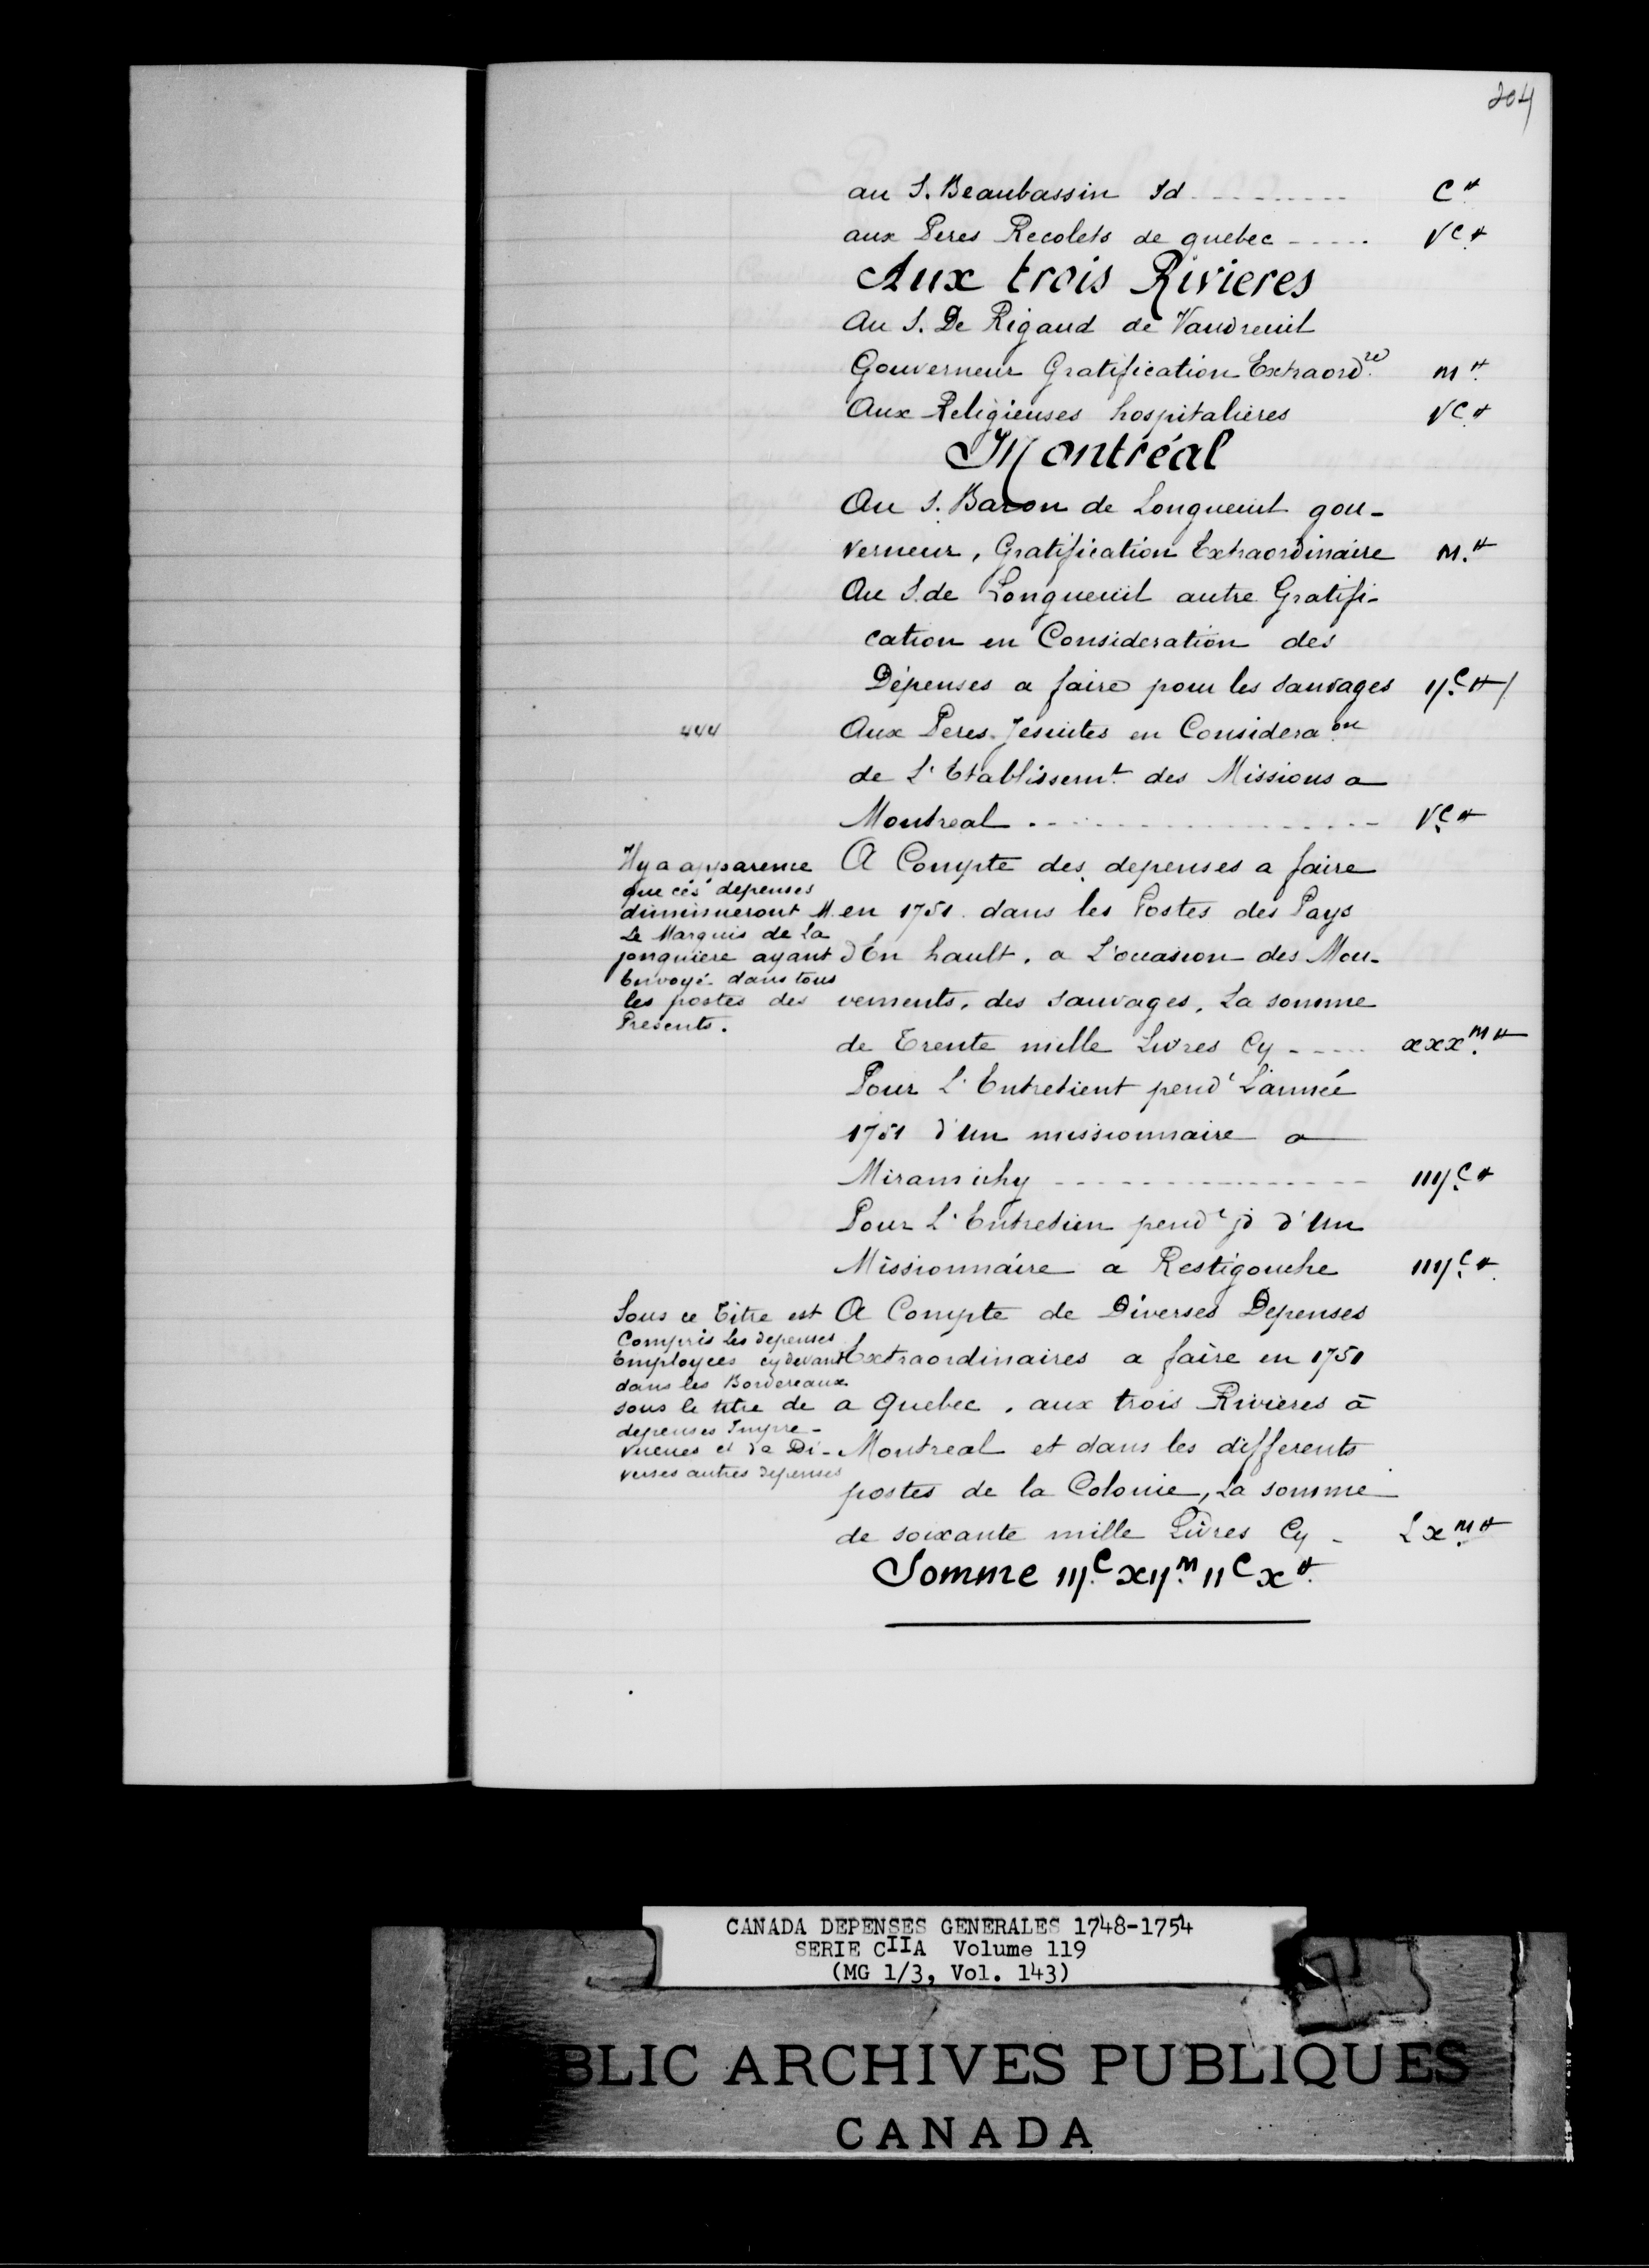 204
au S. Beaubassin Id ---------- C ₶
aux Peres Recolets de quebec ----- VC ₶
Aux trois Rivieres
Au S. De Rigaud de Vaudreuil
Gouverneur Gratification Extraord.re M ₶
Aux Religieuses hospitalieres VC ₶
Montréal
Au S. Baron de Longueuil gou-
verneur, Gratification Extraordinaire M. ₶
Au S. de Longueuil autre Gratifi-
cation en Consideration des
Dépenses a faire pour les sauvages IJ.C ₶
444
Aux Peres Jesuites en Considera.on
de L'Etablissemt. des Missions a
Montreal ---------- V.C ₶
A Compte des depenses a faire
en 1751 dans les Postes des Pays
d'En hault, a L'occasion des Mou-
vements, des sauvages, La somme
de Trente mille Livres Cy ----- xxx.M ₶
Il y a apparence
que ces depenses
diminueront M.
Le Marquis de la
jonquiere ayant
Envoyé dans tous
les postes des
Presents.
Pour L'Entretient pendt L'année
1751 d'un missionnaire a
Miramichy ---------- IIIJ.C ₶
Pour L'Entretien pendt jd d'Un
Missionnaire a Restigouche IIIJ.C ₶
A Compte de Diverses Depenses
Extraordinaires a faire en 1751
a Quebec, aux trois Rivieres à
Montreal et dans les differents
postes de la Colonie, La somme
de soixante mille Livres Cy - Lx.M ₶
Sous ce Titre est
Compris les depenses
Employees cydevant
dans les Bordereaux
sous le titre de
depenses Impre-
vueues et de Di-
verses autres depenses
Somme IIJ.C xIJ.M IIC x ₶
CANADA DEPENSES GENERALES 1748-1754
SERIE CIIA Volume 119
(MG 1/3, Vol. 143)
BLIC ARCHIVES PUBLIQUES
CANADA